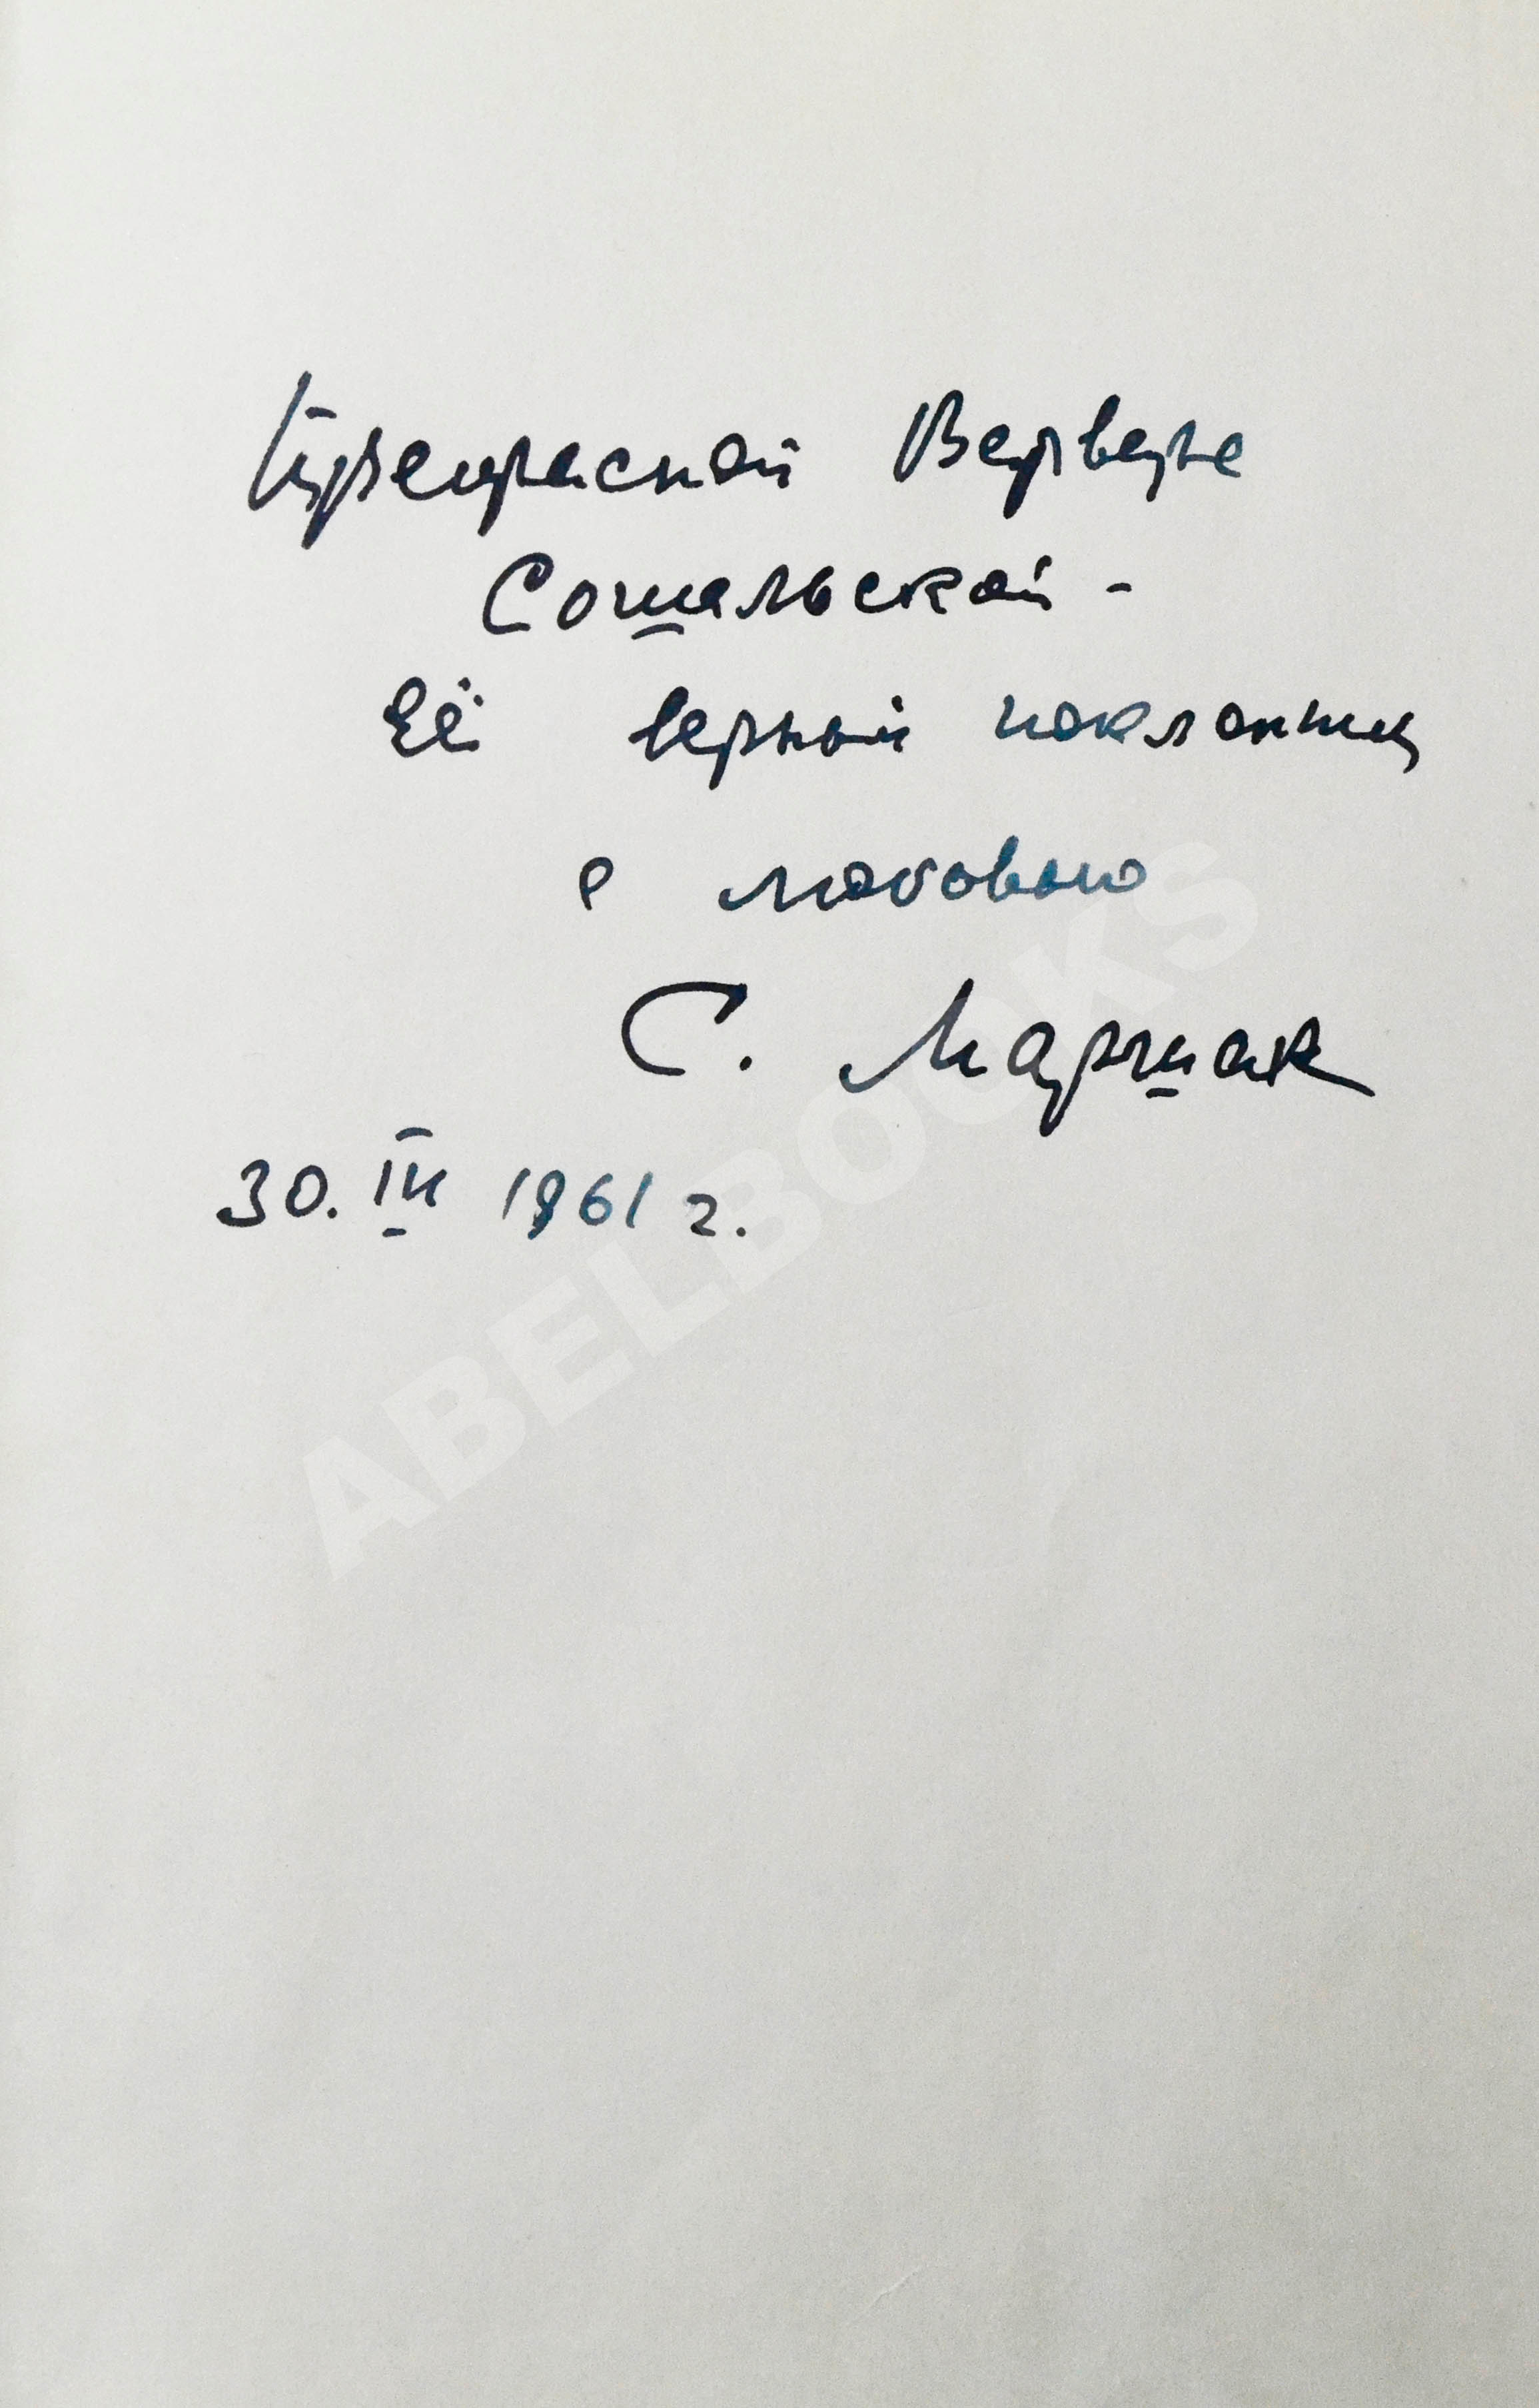 Прекрасной Варваре
Сошальской -
Её верный поклонник
с любовью
С. Маршак
30. III 1961 г.
ABELBOOKS